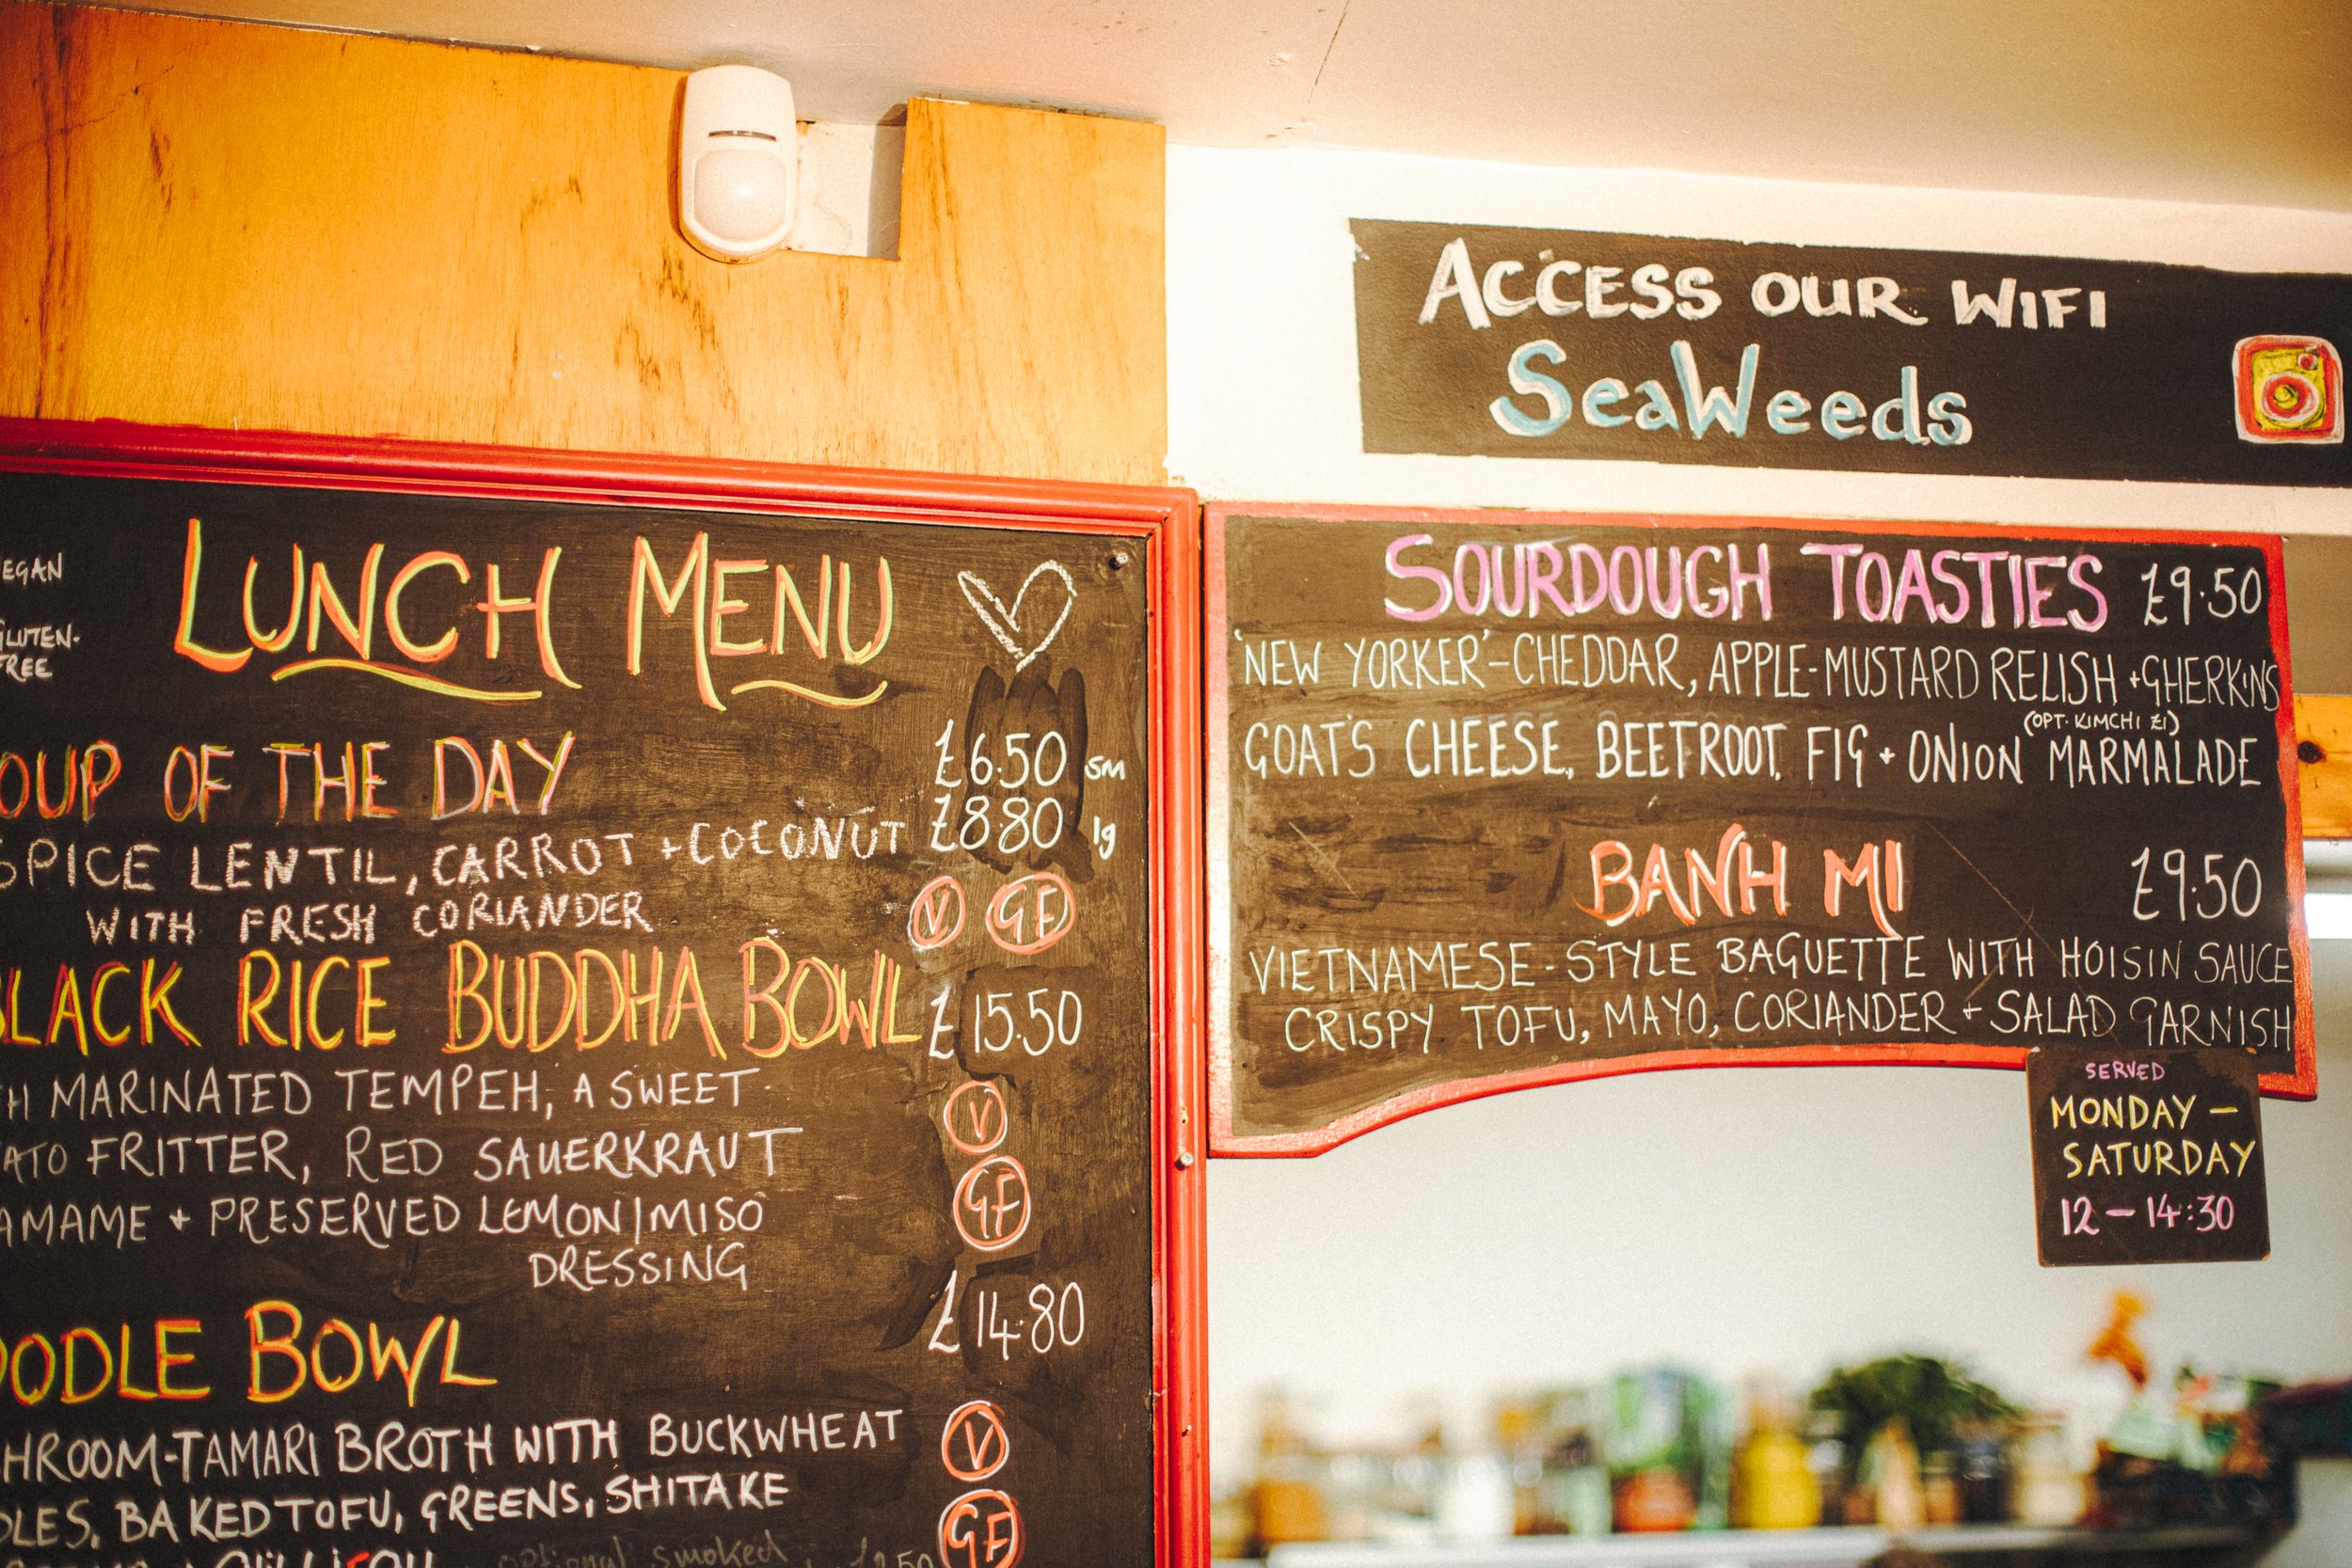 EGAN
GLUTEN-
FREE
LUNCH MENU
OUP OF THE DAY £6.50 sm
£8.80 lg
SPICE LENTIL, CARROT + COCONUT
WITH FRESH CORIANDER V GF
BLACK RICE BUDDHA BOWL £15.50
H MARINATED TEMPEH, A SWEET V
ATO FRITTER, RED SAUERKRAUT
AMAME + PRESERVED LEMON/MISO GF
DRESSING
£14.80
OODLE BOWL
HROOM-TAMARI BROTH WITH BUCKWHEAT V
DLES, BAKED TOFU, GREENS, SHITAKE
GF
optional smoked
ACCESS OUR WIFI
SeaWeeds
SOURDOUGH TOASTIES £9.50
'NEW YORKER'-CHEDDAR, APPLE-MUSTARD RELISH + GHERKINS
(OPT. KIMCHI £1)
GOAT'S CHEESE, BEETROOT, FIG + ONION MARMALADE
BANH MI £9.50
VIETNAMESE-STYLE BAGUETTE WITH HOISIN SAUCE
CRISPY TOFU, MAYO, CORIANDER + SALAD GARNISH
SERVED
MONDAY –
SATURDAY
12 – 14:30